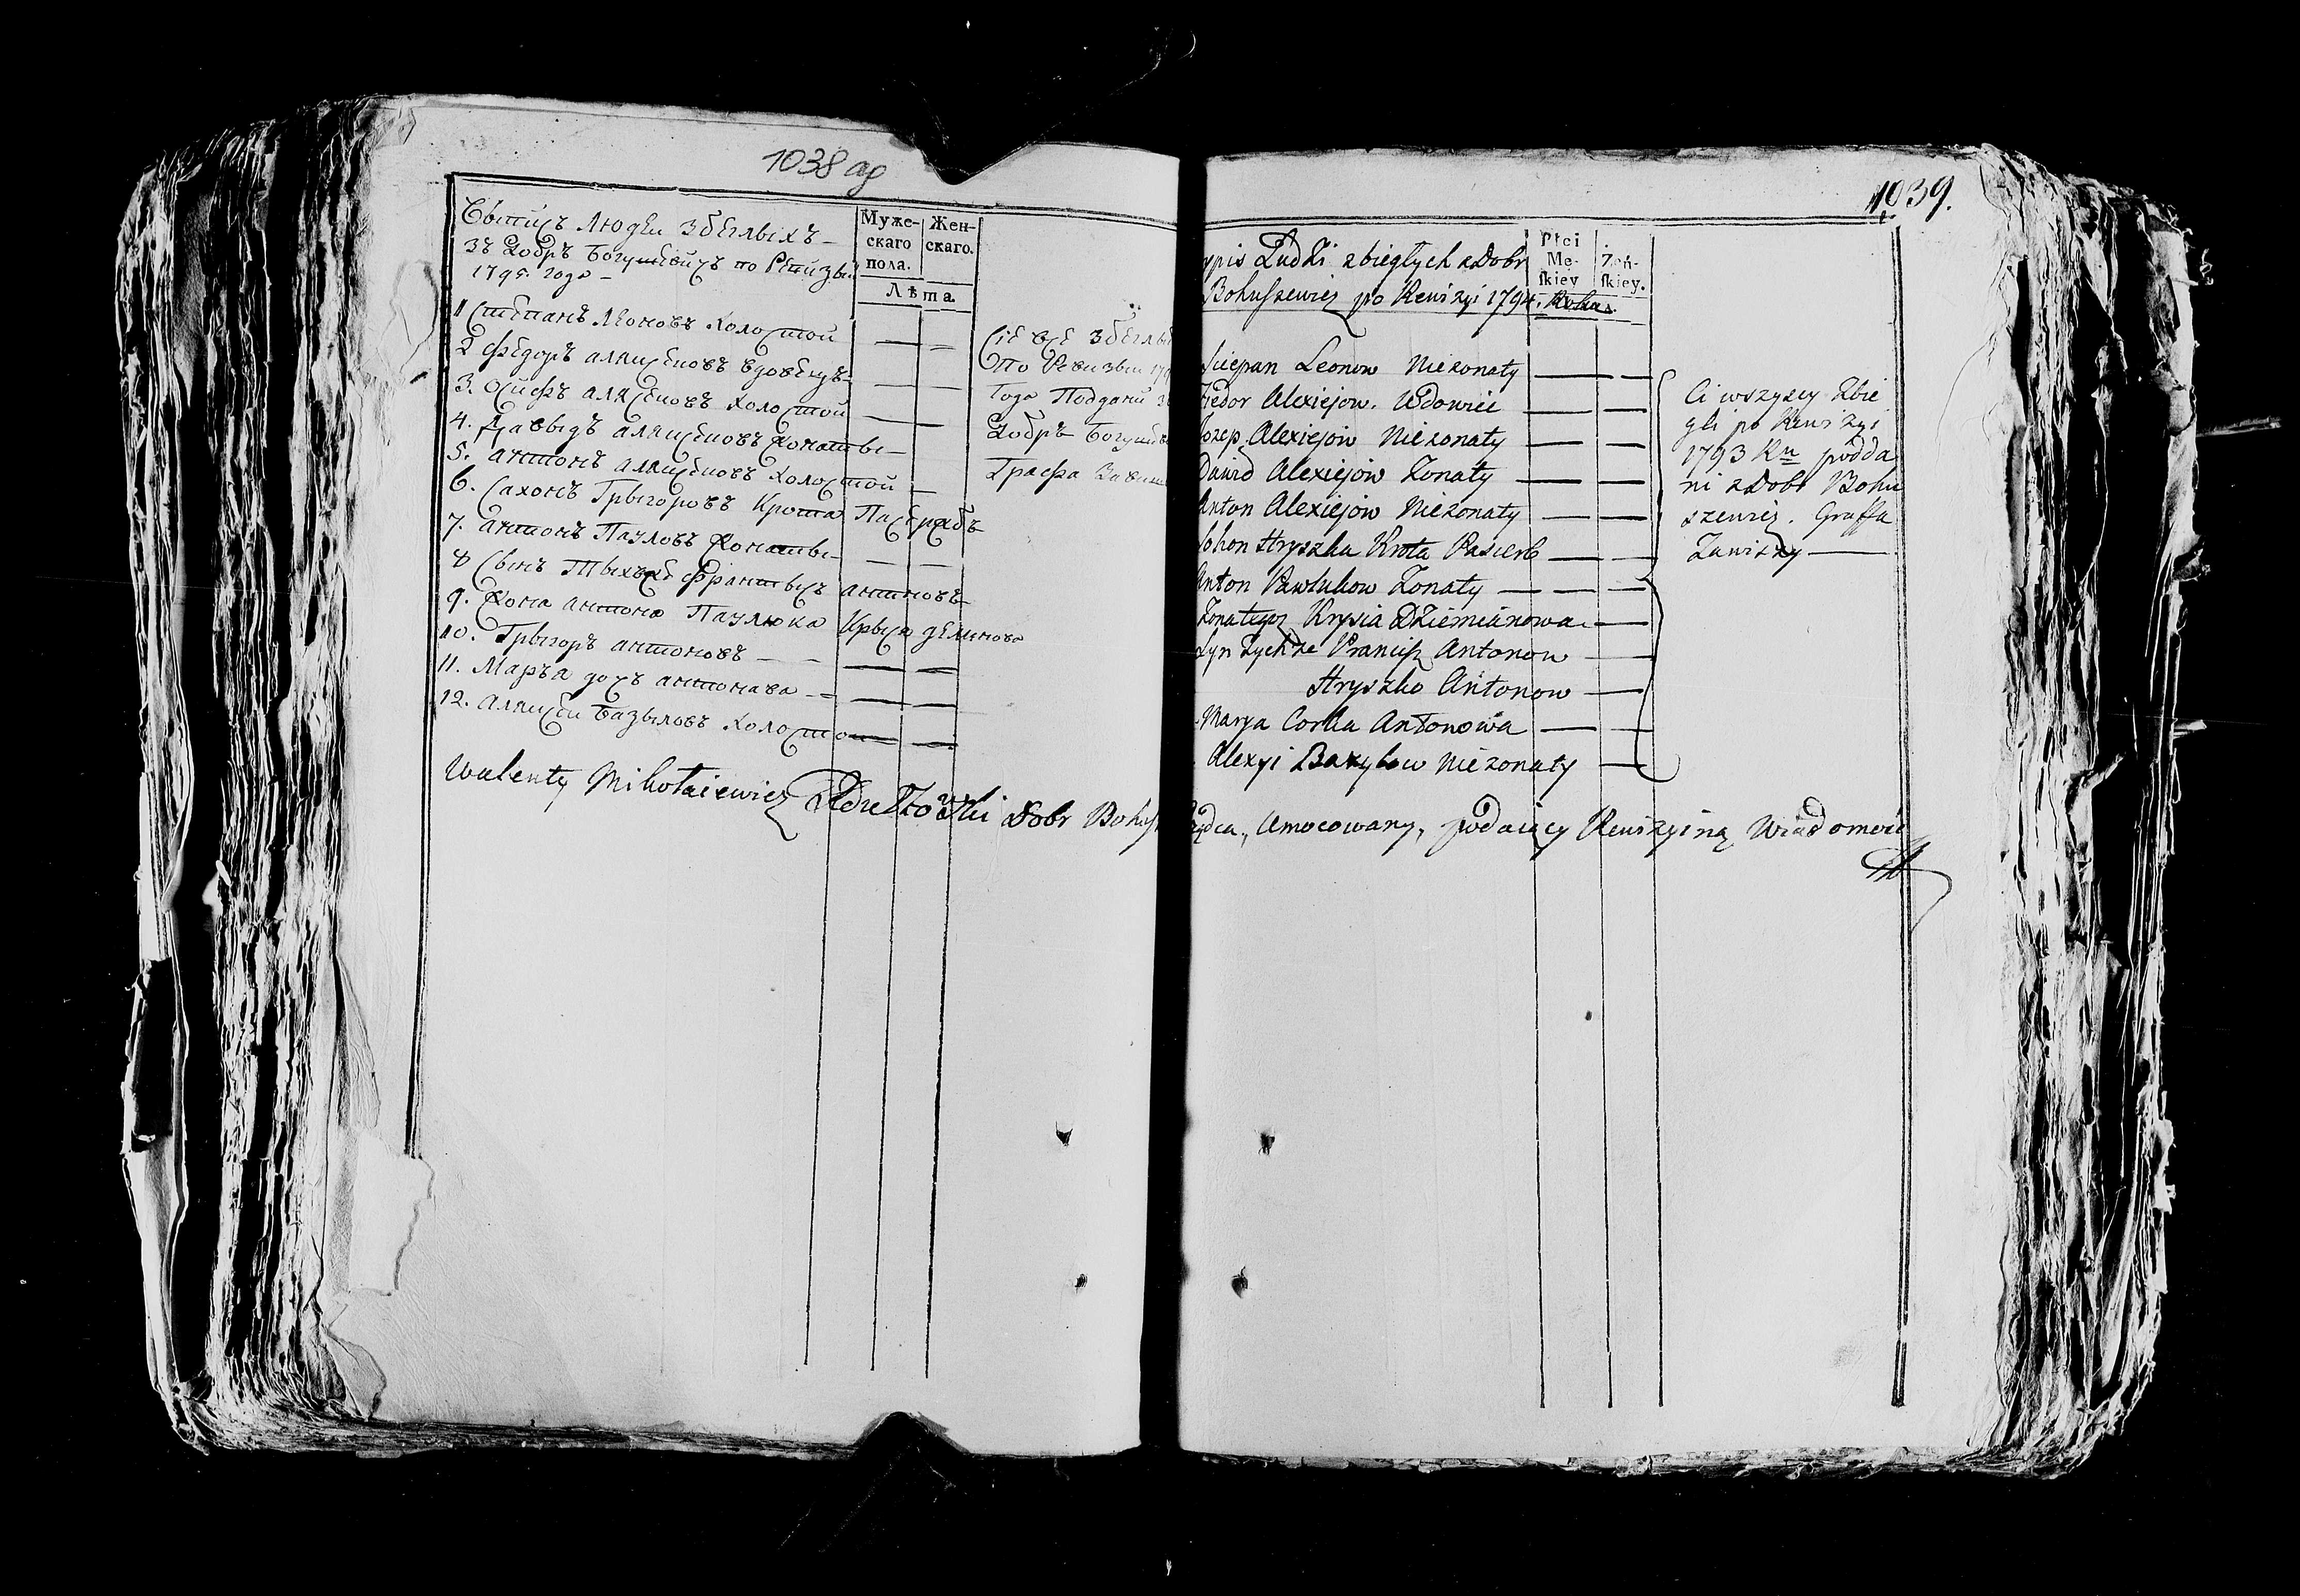 1038 ад
Выписъ людей збеглыхъ
зъ Добръ Богушевичъ по Ревизыи
1795 года
Муже-
скаго
пола.
Жен-
скаго.
Лѣта
1 Степанъ Леоновъ холостой
2 Федоръ Алексеевъ вдовецъ
3. Осифъ Алексеевъ холостой
4. Давыдъ Алексеевъ жонаты
5. Антонъ Алексеевъ холостой
6. Сахонъ Грыгоровъ Крота Пасербъ
7. Антонъ Пауловъ жонаты
8 Сынъ тыхъже Францышъ Антоновъ
9. Жона Антона Паулюка Крыся
10. Грыгоръ Антоновъ
11. Марья дочъ Антонава
12. Алексей Базылевъ холостой
Сiе все збеглы
по Ревизыи 179
Года Поддани з
Добръ Богуше
Графа Завиши
Walenty Mikołaiewicz Dobr Bohus
1039.
ypis Ludzi zbiegłych z Dobr
Bohuszewicz po Rewizyi 1794. Roku.
Płci
Mę-
skiey
Żeń-
skiey.
Sciepan Leonow Nieżonaty
Fiedor Alexiejow. Wdowiec
Jozep Alexiejow Nieżonaty
Dawid Alexiejow Żonaty
Anton Alexiejow Nieżonaty
Sohon Hryszka Krota Pasierb
Anton Pawlukow Żonaty
Żona tegoż Krysia Dziemianowa
Syn tychże Prancisz Antonow
Hryszko Antonow
Marya Corka Antonowa
Alexyi Bazylow Nieżonaty
Ci wszyscy Zbie
gli po Rewizyi
1793 Ru podda
ni z Dobr Bohu
szewicz. Graffa
Zawiszy
ądca, Umocowany, podaiący Rewizyiną Wiadomość